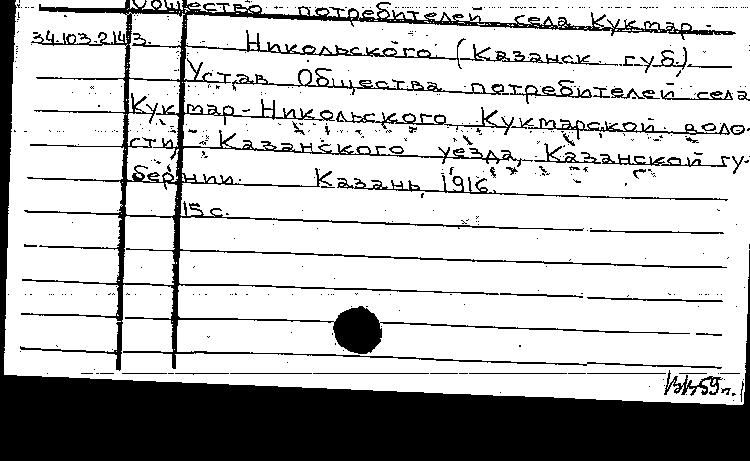 Общество потребителей села Куктар-
34.103.2143. Никольского (Казанск. губ.).
Устав Общества потребителей села
Куктар-Никольского Куктарской воло-
сти, Казанского уезда, Казанской гу-
бернии. Казань, 1916.
15 с.